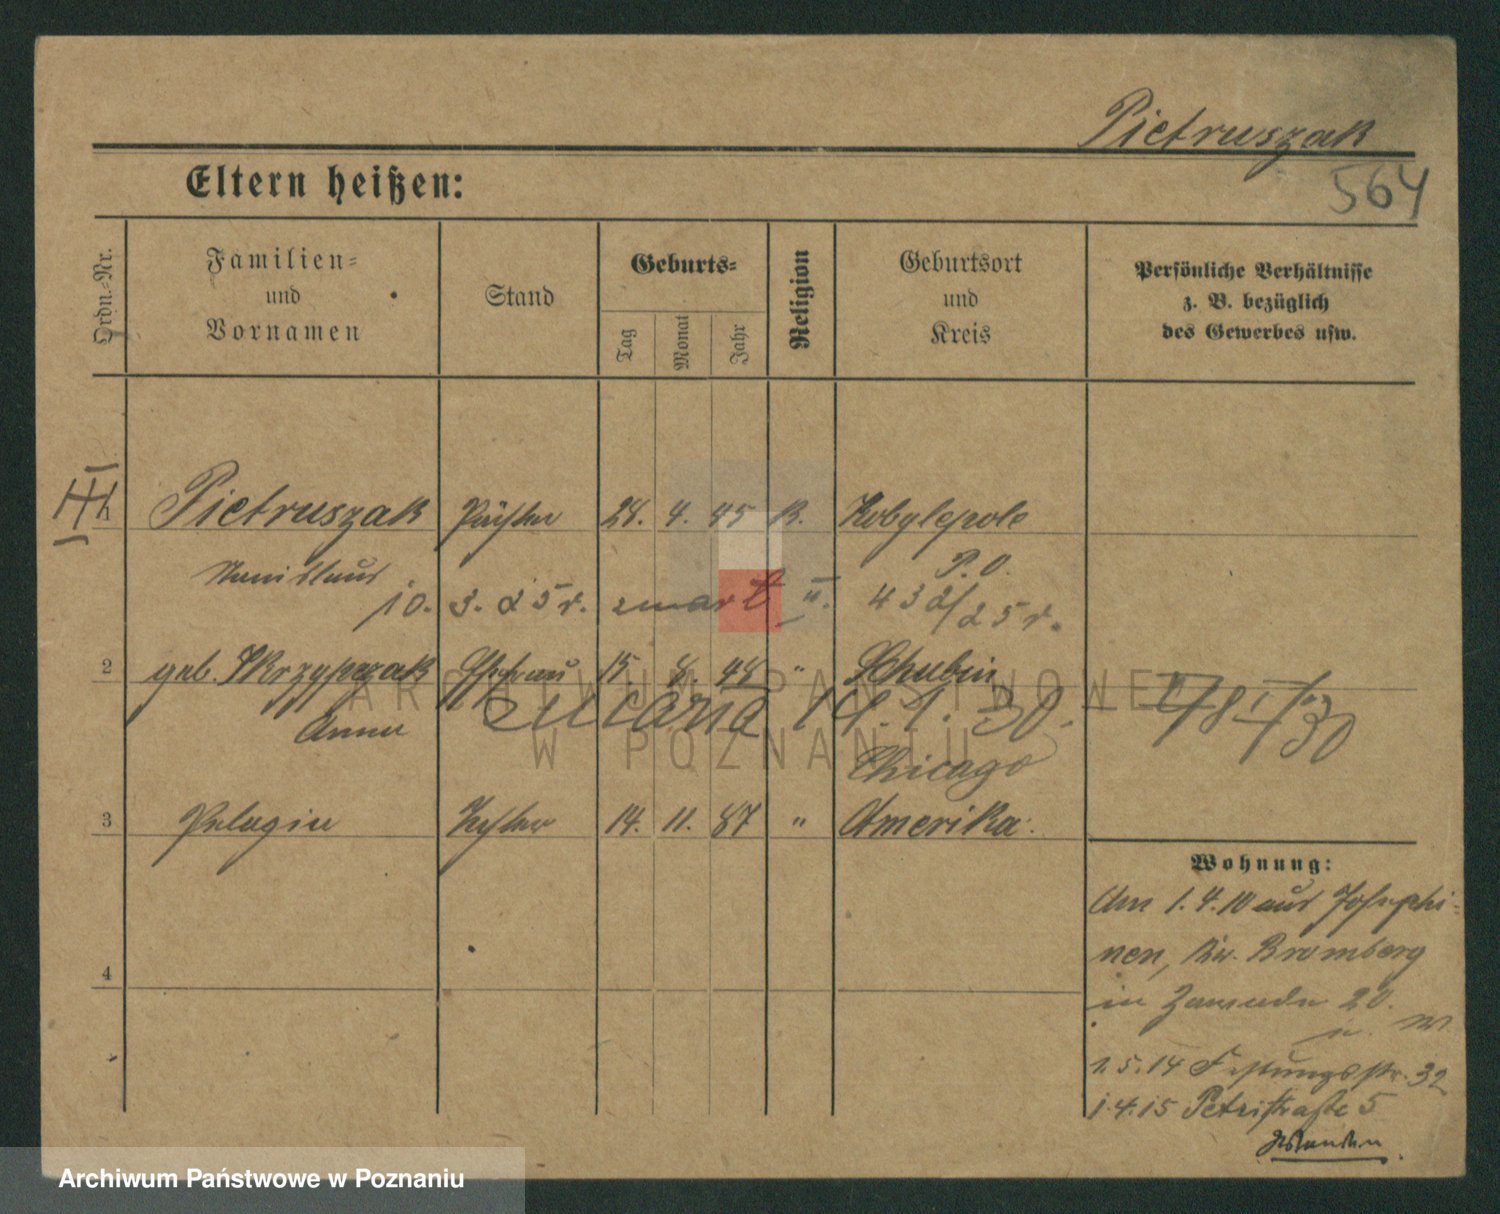 Pietruszak
564
Eltern heißen:
Ordn.=Nr.
Familien=
und
Vornamen
Stand
Geburts=
Tag
Monat
Jahr
Religion
Geburtsort
und
Kreis
Persönliche Verhältnisse
z. B. bezüglich
des Gewerbes usw.
III
1 Pietruszak 28. 4. 45 K. Kobylepole
Stanislaus P.O.
10. 3. 25 r. zmarł 432/25 r.
2 geb. Skrzypczak Ehefrau 15. 8. 48 " Schubin
Anna zmarła 14. 1. 30. 78 I/30
Chicago
3 Pelagia Tochter 14. 11. 87 " Amerika.
4
Wohnung:
Am 1.4.10 aus Josephi=
nen, Kr. Bromberg
in Zawade 20.
1.5.14 Festungsstr. 32
1.4.15 Petristraße 5
ARCHIWUM PAŃSTWOWE
W POZNANIU
Archiwum Państwowe w Poznaniu